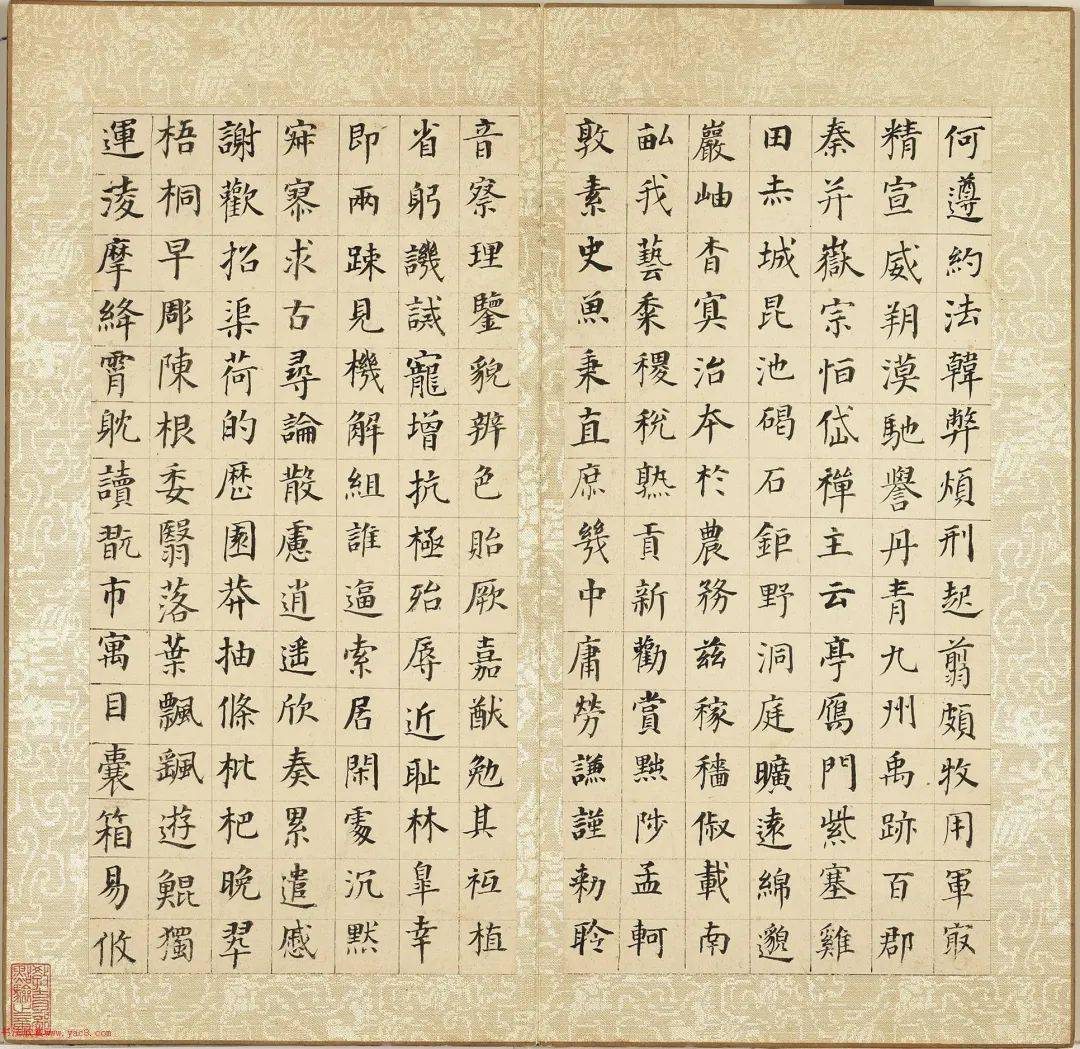 何遵約法韓弊煩刑起翦頗牧用軍㝡
精宣威朔漠馳譽丹青九州禹跡百郡
秦并嶽宗恒岱禪主云亭鴈門紫塞雞
田赤城昆池碣石鉅野洞庭曠遠綿邈
巖岫杳冥治本於農務茲稼穡俶載南
畝我藝黍稷稅熟貢新勸賞黜陟孟軻
敦素史魚秉直庶幾中庸勞謙謹勅聆
音察理鑒貌辨色貽厥嘉猷勉其祗植
省躬譏誡寵增抗極殆辱近耻林皐幸
即兩踈見機解組誰逼索居閑處沉默
寂寥求古尋論散慮逍遙欣奏累遣慼
謝歡招渠荷的歷園莽抽條枇杷晚翠
梧桐早彫陳根委翳落葉飄颻遊鯤獨
運淩摩絳霄耽讀翫市寓目囊箱易攸
书法欣赏www.yac8.com